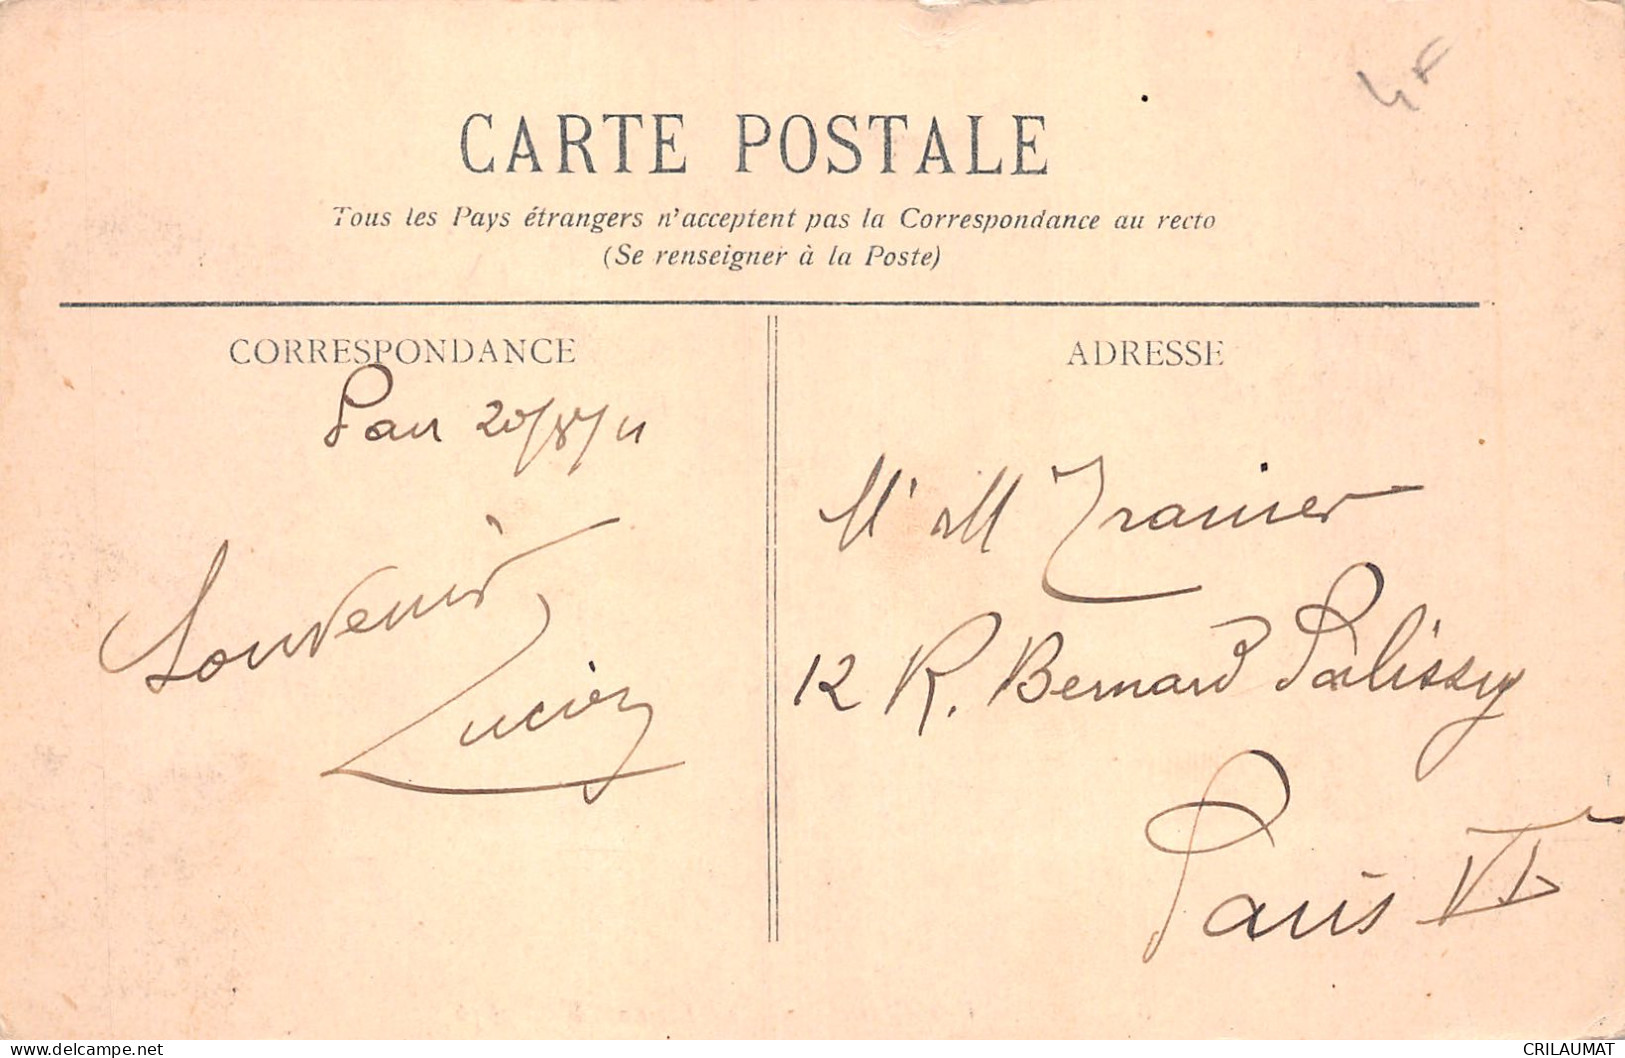 4F
CARTE POSTALE
Tous les Pays étrangers n'acceptent pas la Correspondance au recto
(Se renseigner à la Poste)
CORRESPONDANCE
ADRESSE
Pau 20/8/11
Souvenir
Lucien
Mr M Tranier
12 R. Bernard Palissy
Paris VI
delcampe.net
CRILAUMAT